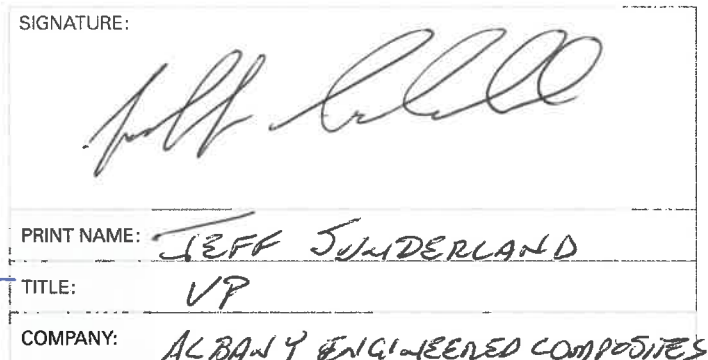 SIGNATURE:
PRINT NAME: JEFF SUNDERLAND
TITLE: VP
COMPANY: ALBANY ENGINEERED COMPOSITES